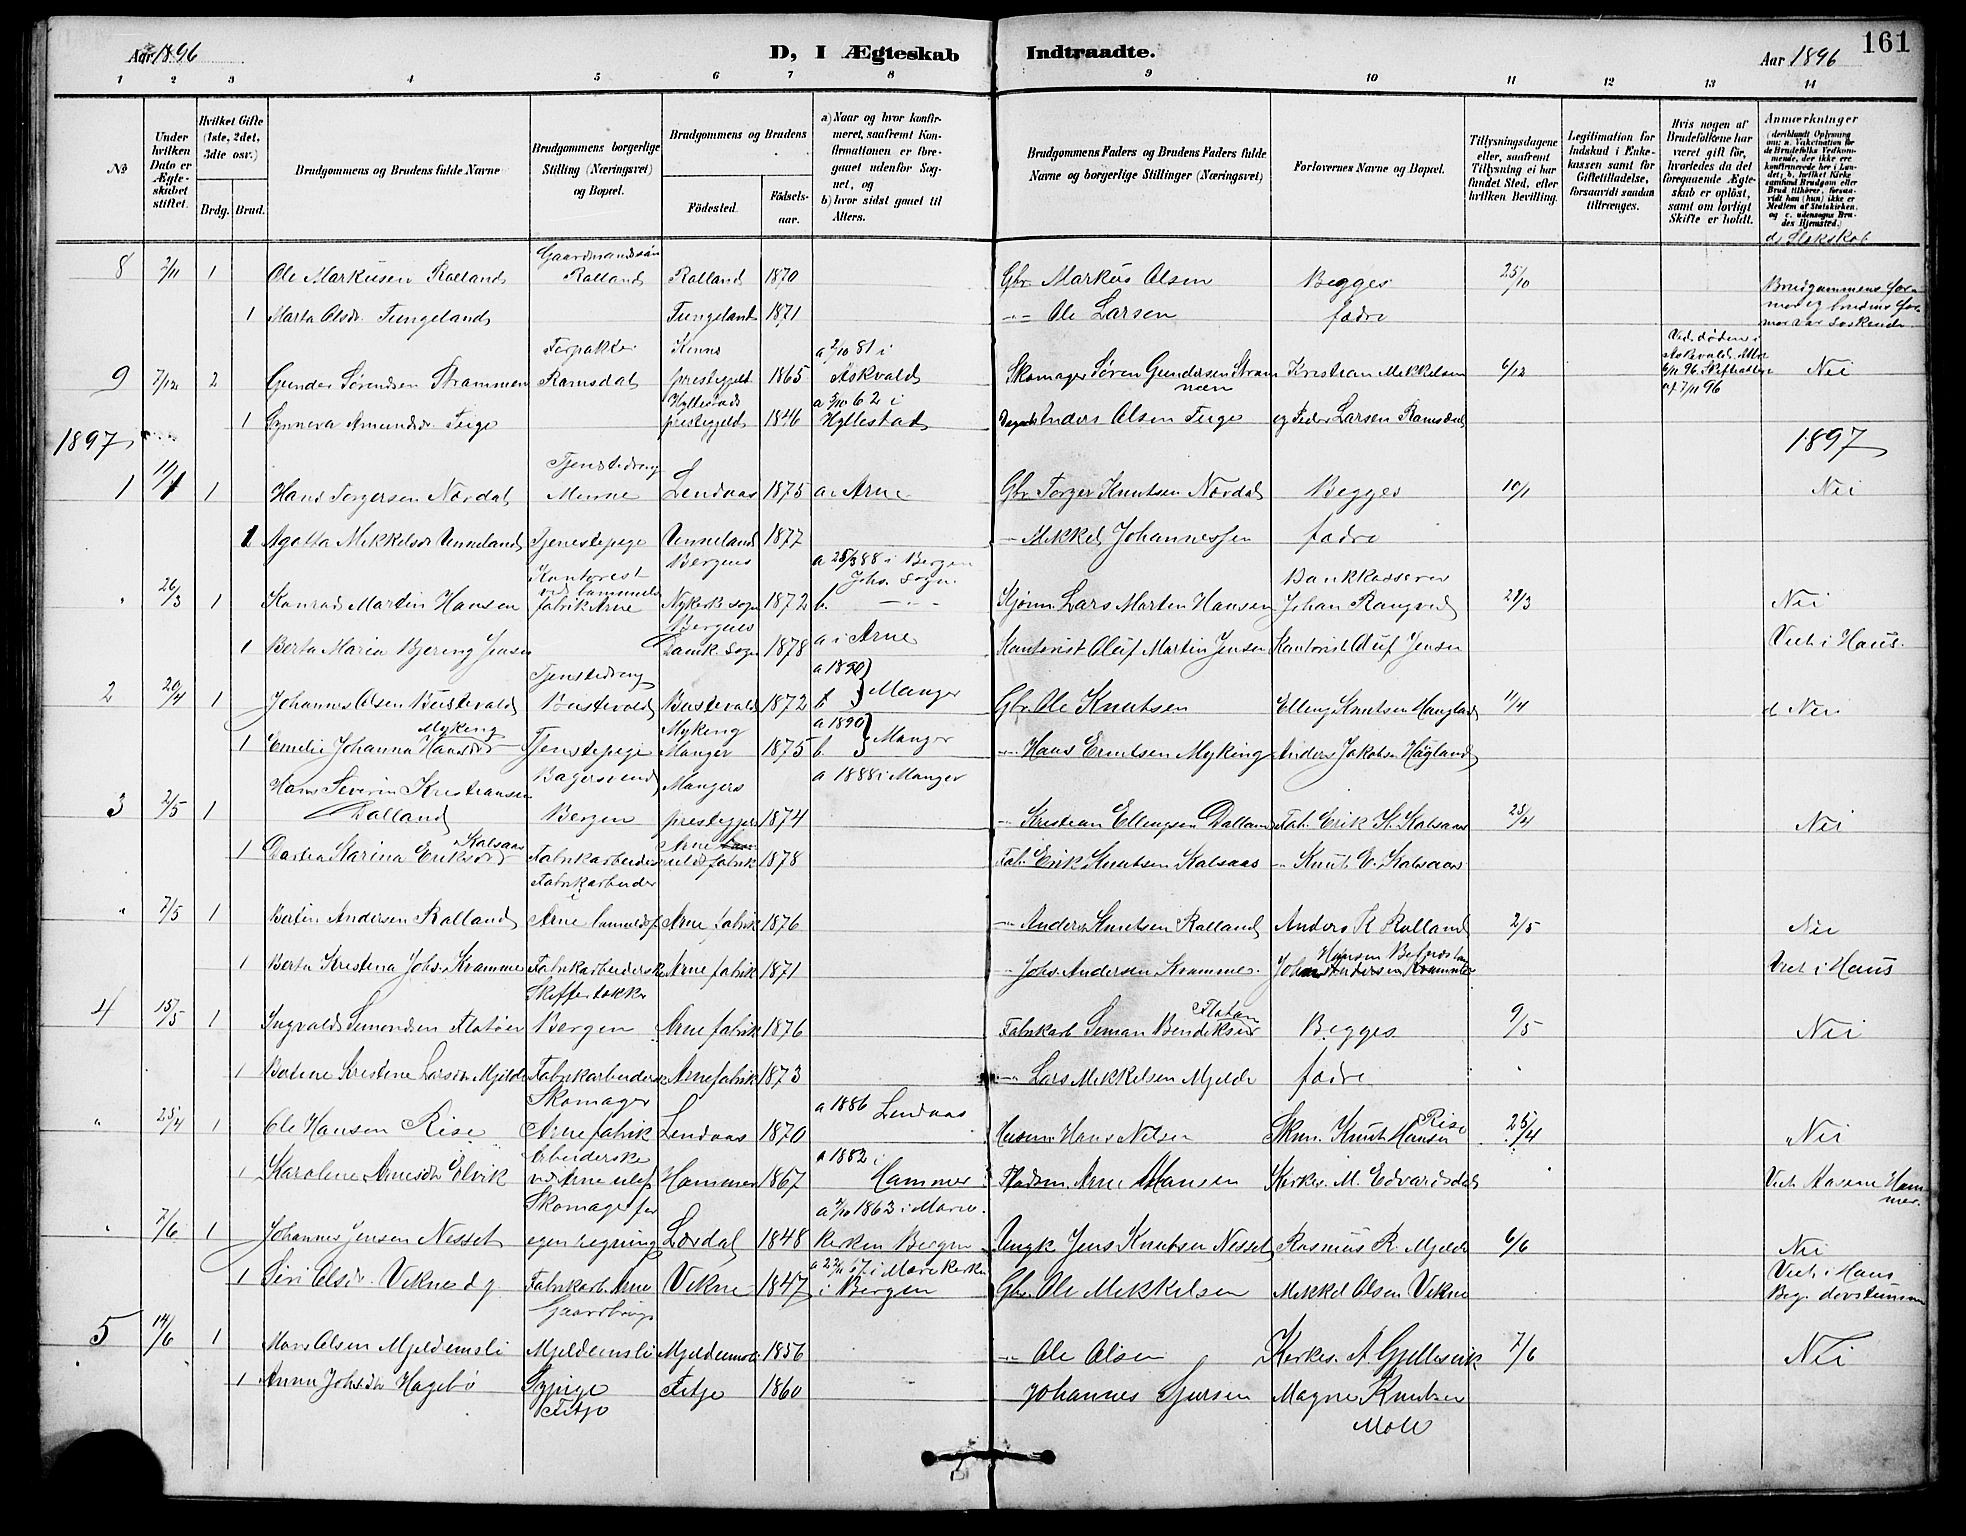 161
Aar 1896
D, I Ægteskab Indtraadte.
Aar 1896
1 2 3 4 5 6 7 8 9 10 11 12 13 14
No
Under hvilken Dato er Ægteskabet stiftet.
Hvilket Gifte (1ste, 2det, 3die osv.)
Brdg. Brud.
Brudgommens og Brudens fulde Navne
Brudgommens borgerlige Stilling (Næringsvei) og Bopæl.
Brudgommens og Brudens
Fødested. Fødselsaar.
a) Naar og hvor konfirmeret, saafremt Konfirmationen er foregaaet udenfor Sognet, og
b) hvor sidst gaaet til Alters.
Brudgommens Faders og Brudens Faders fulde Navne og borgerlige Stillinger (Næringsvei)
Forlovernes Navne og Bopæl.
Tillysningsdagene eller, saafremt Tillysning ei har fundet Sted, efter hvilken Bevilling.
Legitimation for Indskud i Enkekassen samt for Giftetilladelse, forsaavidt saadan tiltrænges.
Hvis nogen af Brudefolkene har været gift før, hvorledes da det foregaaende Ægteskab er opløst, samt om lovligt Skifte er holdt.
Anmærkninger
(deriblandt Oplysning om: a. Vakcination for de Brudefolks Vedkommende, der ikke ere konfirmerede her i Landet; b. hvilket Kirkesamfund Brudgom eller Brud tilhører, forsaavidt han (hun) ikke er Medlem af Statskirken. og c. udensogns Brudes Hjemsted.)
d. Slekskab
8 2/11 1 Ole Markusen Rolland Gaardmandssøn Rolland Rolland 1870 Gbr Markus Olsen Begges 25/10 Brudgommens farmor og brudens farmor var søskende
1 Marta Olsdr. Tungeland Tungeland 1871 -"- Ole Larsen fædre
9 7/12 2 Gunder Sørensen Strammen Ramsdal Kinns prestegjeld 1865 a 2/10 81 i Askvold Skomager Søren Gundersen Strammen Kristian Mekkelsen 6/12 Nei
1 Synneva Amundsdr. Teige Hyllestads prestegjeld 1846 a 5/10 62 i Hyllestad Anders Olsen Teige og Peder Larsen Ramsdal
1897 1897
1 11/1 1 Hans Torgersen Nordal Tjenstedreng Mune Lendaas 1875 a. Arne Gbr Torger Knutsen Nordal Begges 10/1 Nei
1 Agatta Mekkelsdr. Unneland Tjenestepige Unneland 1877 - Mekkel Johannessen fædre
" 26/3 1 Konrad Martin Hansen Kontorist ved tommeler fabrik Arne Bergens Nykirke sogn 1872 a 25/3 88 i Bergen Johs. Sogn. b. -"- Lars Martin Hansen Bankkasserer Johan Rangvid 21/3 Nei
1 Berta Maria Bjering Jensen Bergens Domk. Sogn 1878 a i Arne Kontorist Oluf Martin Jensen Kontorist Oluf Jensen Viet i Haus.
2 20/4 1 Johannes Olsen Bustevold Tjenstedreng Bustevold Bustevold 1872 a 1890 b } Manger Gbr Ole Knutsen Elling Knutsen Haugland 11/4 d Nei
1 Emelie Johanna Hansdr Myking Tjenstepige Myking Manger 1875 a 1890 b. } Manger -"- Hans Erantsen Myking Anders Jakobsen Høgland
3 2/5 1 Hans Severin Kristiansen Dalland Bagersvend Bergen Mangers prestegjeld 1874 a 1888 i Manger -"- Kristian Ellingsen Dalland Fab. Erik K. Kalsaas 25/4 Nei
1 Dortea Karina Eriksdr Kalsaas Fabrikarbeider Arne uldfabrik 1878 Fab. Erik Knutsen Kalsaas - Knut E. Kalsaas
" 7/5 1 Botin Andersen Rolland Fabrikarbeider i Arne Arne fabrik 1876 -"- Anders Knutsen Rolland Anders K Rolland 2/5 Nei
1 Berta Kristina Johs. Krammer Fabrikarbeiderske Arne fabrik 1871 -"- Johs. Andersen Krammer. Viet i Haus
4 15/5 1 Ingvald Simonsen Flatøen Skiffertækker Bergen Arne fabrik 1876 Fabrikarb Simon Bendiksen Flaten Begges 9/5 Nei
1 Botene Kristine Larsdr Mjelde Fabrikarbeiderske Arne fabrik 1873 -"- Lars Mekkelsen Mjelde fædre
" 25/4 1 Ole Hansen Rise Skomager Arne fabrik Lendaas 1870 a 1886 Lendaas Husm Hans Nilsen Skm. Knut Hansen Rise 25/4 Nei
1 Karoline Arnesdr Elvik Arbeiderske ved Arne uldf Hammer 1867 a 1882 i Hammer Arne Hansen Kirkes. M. Edvardsdal Viet Hammer.
" 7/6 1 Johannes Jensen Nesset Skomager for egen regning Lærdal 1848 a 4/10 1863 i Marie Kirken Bergen Ungk Jens Knutsen Nesset Rasmus R. Mjelde 6/6 Nei
1 Siri Olsdr. Vikne d y Fabrikarb. Arne Vikne 1847 i Marikirke i Bergen Gbr. Ole Mekkelsen Mekkel Olsen Vikne Viet i Haus
5 14/6 1 Mons Olsen Mjeldemsli Gaardbruger Mjeldemsli Mjeldemsli 1856 -"- Ole Olsen Kirkes. A Gjellesvik 7/6 Nei
1 Anna Johsdtr Hagebø Sypige Fitje Fitje 1860 Johannes Sjursen Magne Knutsen Mole